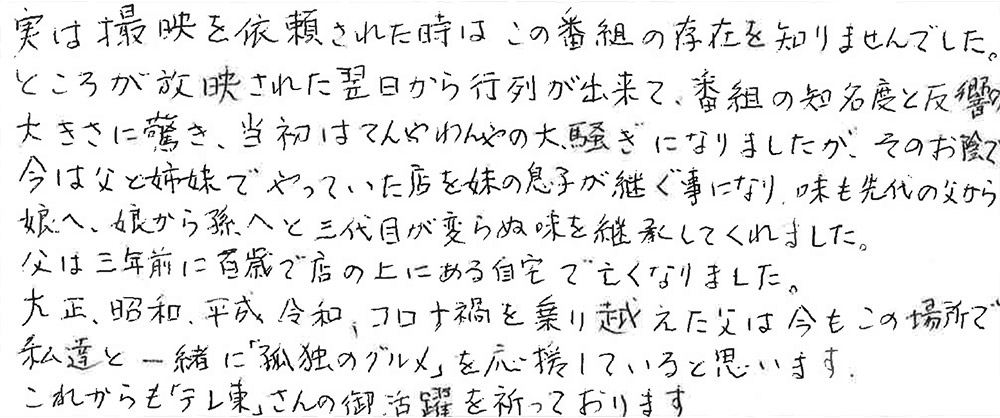 実は撮映を依頼された時はこの番組の存在を知りませんでした。
ところが放映された翌日から行列が出来て、番組の知名度と反響の
大きさに驚き、当初はてんやわんやの大騒ぎになりましたが、そのお陰で
今は父と姉妹でやっていた店を妹の息子が継ぐ事になり、味も先代の父から
娘へ、娘から孫へと三代目が変らぬ味を継承してくれました。
父は三年前に百歳で店の上にある自宅で亡くなりました。
大正、昭和、平成、令和、コロナ禍を乗り越えた父は今もこの場所で
私達と一緒に「孤独のグルメ」を応援していると思います。
これからも「テレ東」さんの御活躍を祈っております